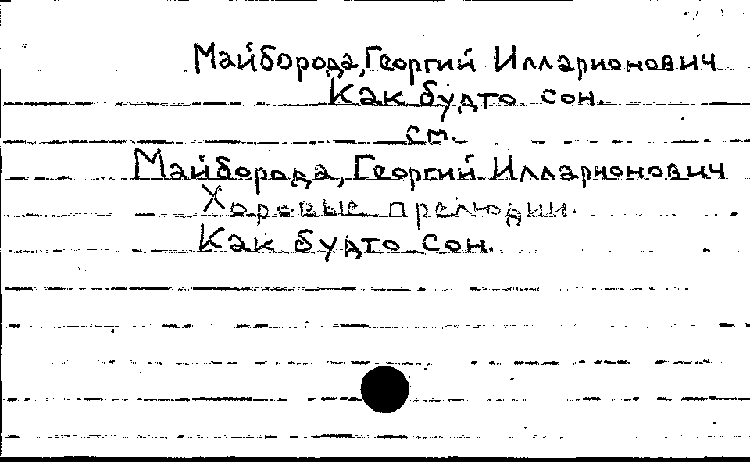 Майборода, Георгий Илларионович
Как будто сон.
см.
Майборода, Георгий Илларионович
Хоровые прелюдии.
Как будто сон.